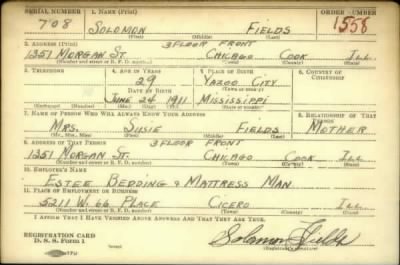 SERIAL NUMBER 1. NAME (Print) ORDER NUMBER
708 SOLOMON FIELDS 1558
(First) (Middle) (Last)
2. ADDRESS (Print) 3 FLOOR FRONT
1351 MORGAN ST. CHICAGO COOK ILL
(Number and street or R. F. D. number) (Town) (County) (State)
3. TELEPHONE 4. AGE IN YEARS 5. PLACE OF BIRTH 6. COUNTRY OF CITIZENSHIP
29 YAZOO CITY
DATE OF BIRTH (Town or county)
JUNE 24 1911 MISSISSIPPI
(Exchange) (Number) (Mo.) (Day) (Yr.) (State or country)
7. NAME OF PERSON WHO WILL ALWAYS KNOW YOUR ADDRESS 8. RELATIONSHIP OF THAT PERSON
MRS. SUSIE FIELDS MOTHER
(Mr., Mrs., Miss) (First) (Middle) (Last)
9. ADDRESS OF THAT PERSON 3 FLOOR FRONT
1351 MORGAN ST. CHICAGO COOK ILL
(Number and street or R. F. D. number) (Town) (County) (State)
10. EMPLOYER'S NAME
ESTEE BEDDING & MATTRESS MAN
11. PLACE OF EMPLOYMENT OR BUSINESS
5211 W. 66 PLACE CICERO ILL
(Number and street or R. F. D. number) (Town) (County) (State)
I AFFIRM THAT I HAVE VERIFIED ABOVE ANSWERS AND THAT THEY ARE TRUE.
REGISTRATION CARD
D. S. S. Form 1
Solomon Fields
(Registrant's signature)